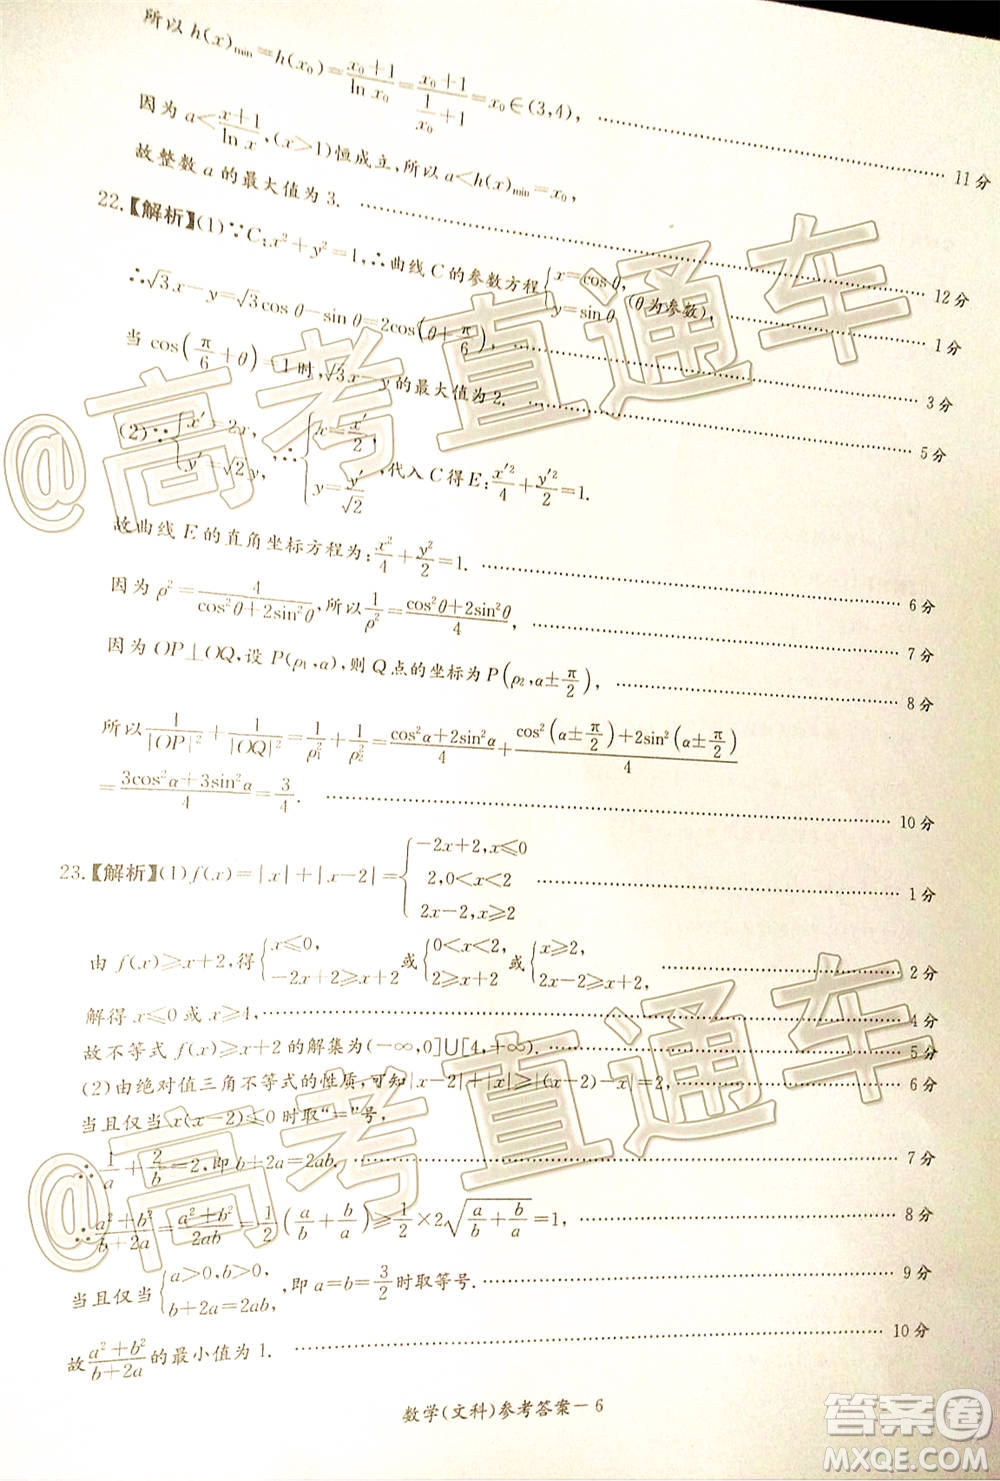 所以h(x)min=h(x₀)=(x₀+1)/(ln x₀)=(x₀+1)/(1/x₀+1)=x₀∈(3,4), …… 11分
因为a<(x+1)/(ln x),(x>1)恒成立,所以a<h(x)min=x₀,
故整数a的最大值为3. …… 12分
22.【解析】(1)∵C:x²+y²=1,∴曲线C的参数方程{x=cosθ, y=sinθ(θ为参数), …… 1分
∴√3x-y=√3cosθ-sinθ=2cos(θ+π/6), …… 3分
当cos(π/6+θ)=1时,√3x-y的最大值为2. …… 5分
(2)∵{x′=2x, y′=√2y, ∴{x=x′/2, y=y′/√2, 代入C得E:x′²/4+y′²/2=1.
故曲线E的直角坐标方程为:x²/4+y²/2=1. …… 6分
因为ρ²=4/(cos²θ+2sin²θ),所以1/ρ²=(cos²θ+2sin²θ)/4, …… 7分
因为OP⊥OQ,设P(ρ₁,α),则Q点的坐标为P(ρ₂,α±π/2), …… 8分
所以1/|OP|²+1/|OQ|²=1/ρ₁²+1/ρ₂²=(cos²α+2sin²α)/4+(cos²(α±π/2)+2sin²(α±π/2))/4
=(3cos²α+3sin²α)/4=3/4. …… 10分
23.【解析】(1)f(x)=|x|+|x-2|={-2x+2,x≤0 2,0<x<2 2x-2,x≥2 …… 1分
由f(x)≥x+2,得{x≤0, -2x+2≥x+2 或{0<x<2, 2≥x+2 或{x≥2, 2x-2≥x+2, …… 2分
解得x≤0或x≥4, …… 4分
故不等式f(x)≥x+2的解集为(-∞,0]∪[4,+∞). …… 5分
(2)由绝对值三角不等式的性质,可知|x-2|+|x|≥|(x-2)-x|=2, …… 6分
当且仅当x(x-2)≤0时取“=”号,
∴1/a+2/b=2,即b+2a=2ab. …… 7分
∴(a²+b²)/(b+2a)=(a²+b²)/(2ab)=1/2(a/b+b/a)≥1/2×2√(a/b·b/a)=1, …… 8分
当且仅当{a>0,b>0, b+2a=2ab, 即a=b=3/2时取等号. …… 9分
故(a²+b²)/(b+2a)的最小值为1. …… 10分
数学(文科)参考答案-6
@高考直通车
@高考直通车
答案圈
MXQE.COM